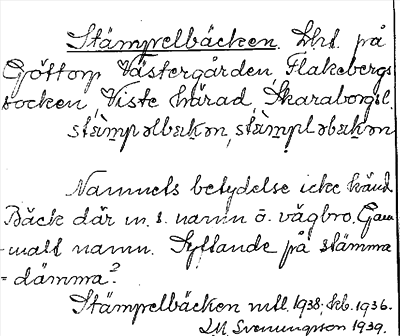 Stämpelbäcken. Lht. på
Göttorp Västergården, Flakebergs
socken, Viste härad, Skaraborgs l.
stam̀pəlbɛkən, stam̀pləbɛkən
Namnets betydelse icke känd
Bäck där m. s. namn o. vägbro. Gam
-malt namn. Syftande på stämma
= dämma?
Stämpelbäcken 1938, 1936.
LM. Svenungsson 1939.